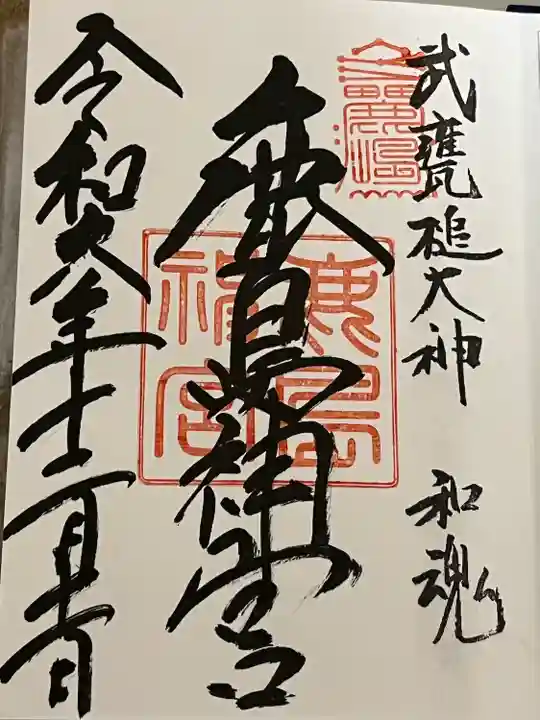 武甕槌大神 和魂
鹿島神宮
鹿島神宮
令和六年十二月